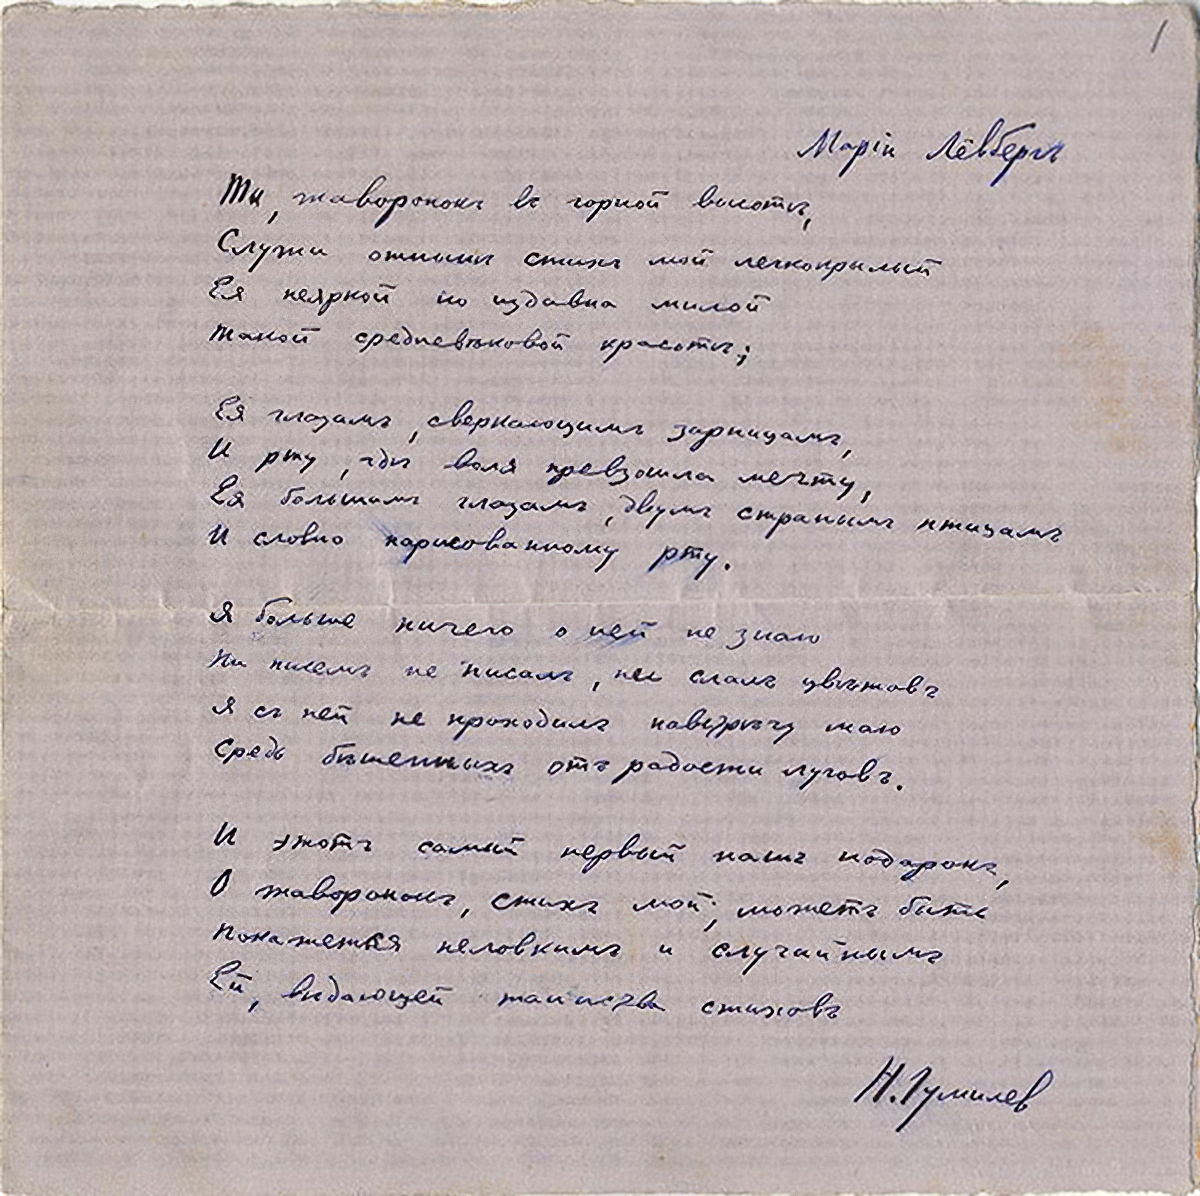 1
Маріи Лёвбергъ
Ты, жаворонокъ въ горной высотѣ,
Служи отнынѣ стихъ мой легкокрылый
Ея неяркой но издавна милой
Такой средневѣковой красотѣ;
Ея глазамъ, сверкающимъ зарницамъ,
И рту, гдѣ воля превзошла мечту,
Ея большимъ глазамъ, двумъ страннымъ птицамъ
И словно нарисованному рту.
Я больше ничего о ней не знаю
Ни писемъ не писалъ, ни слалъ цвѣтовъ
Я съ ней не проходилъ навстрѣчу маю
Средь бѣшенныхъ отъ радости луговъ.
И этотъ самый первый нашъ подарокъ,
О жаворонокъ, стихъ мой, можетъ быть
Покажется неловкимъ и случайнымъ
Ей, вѣдающей таинства стиховъ
Н. Гумилев